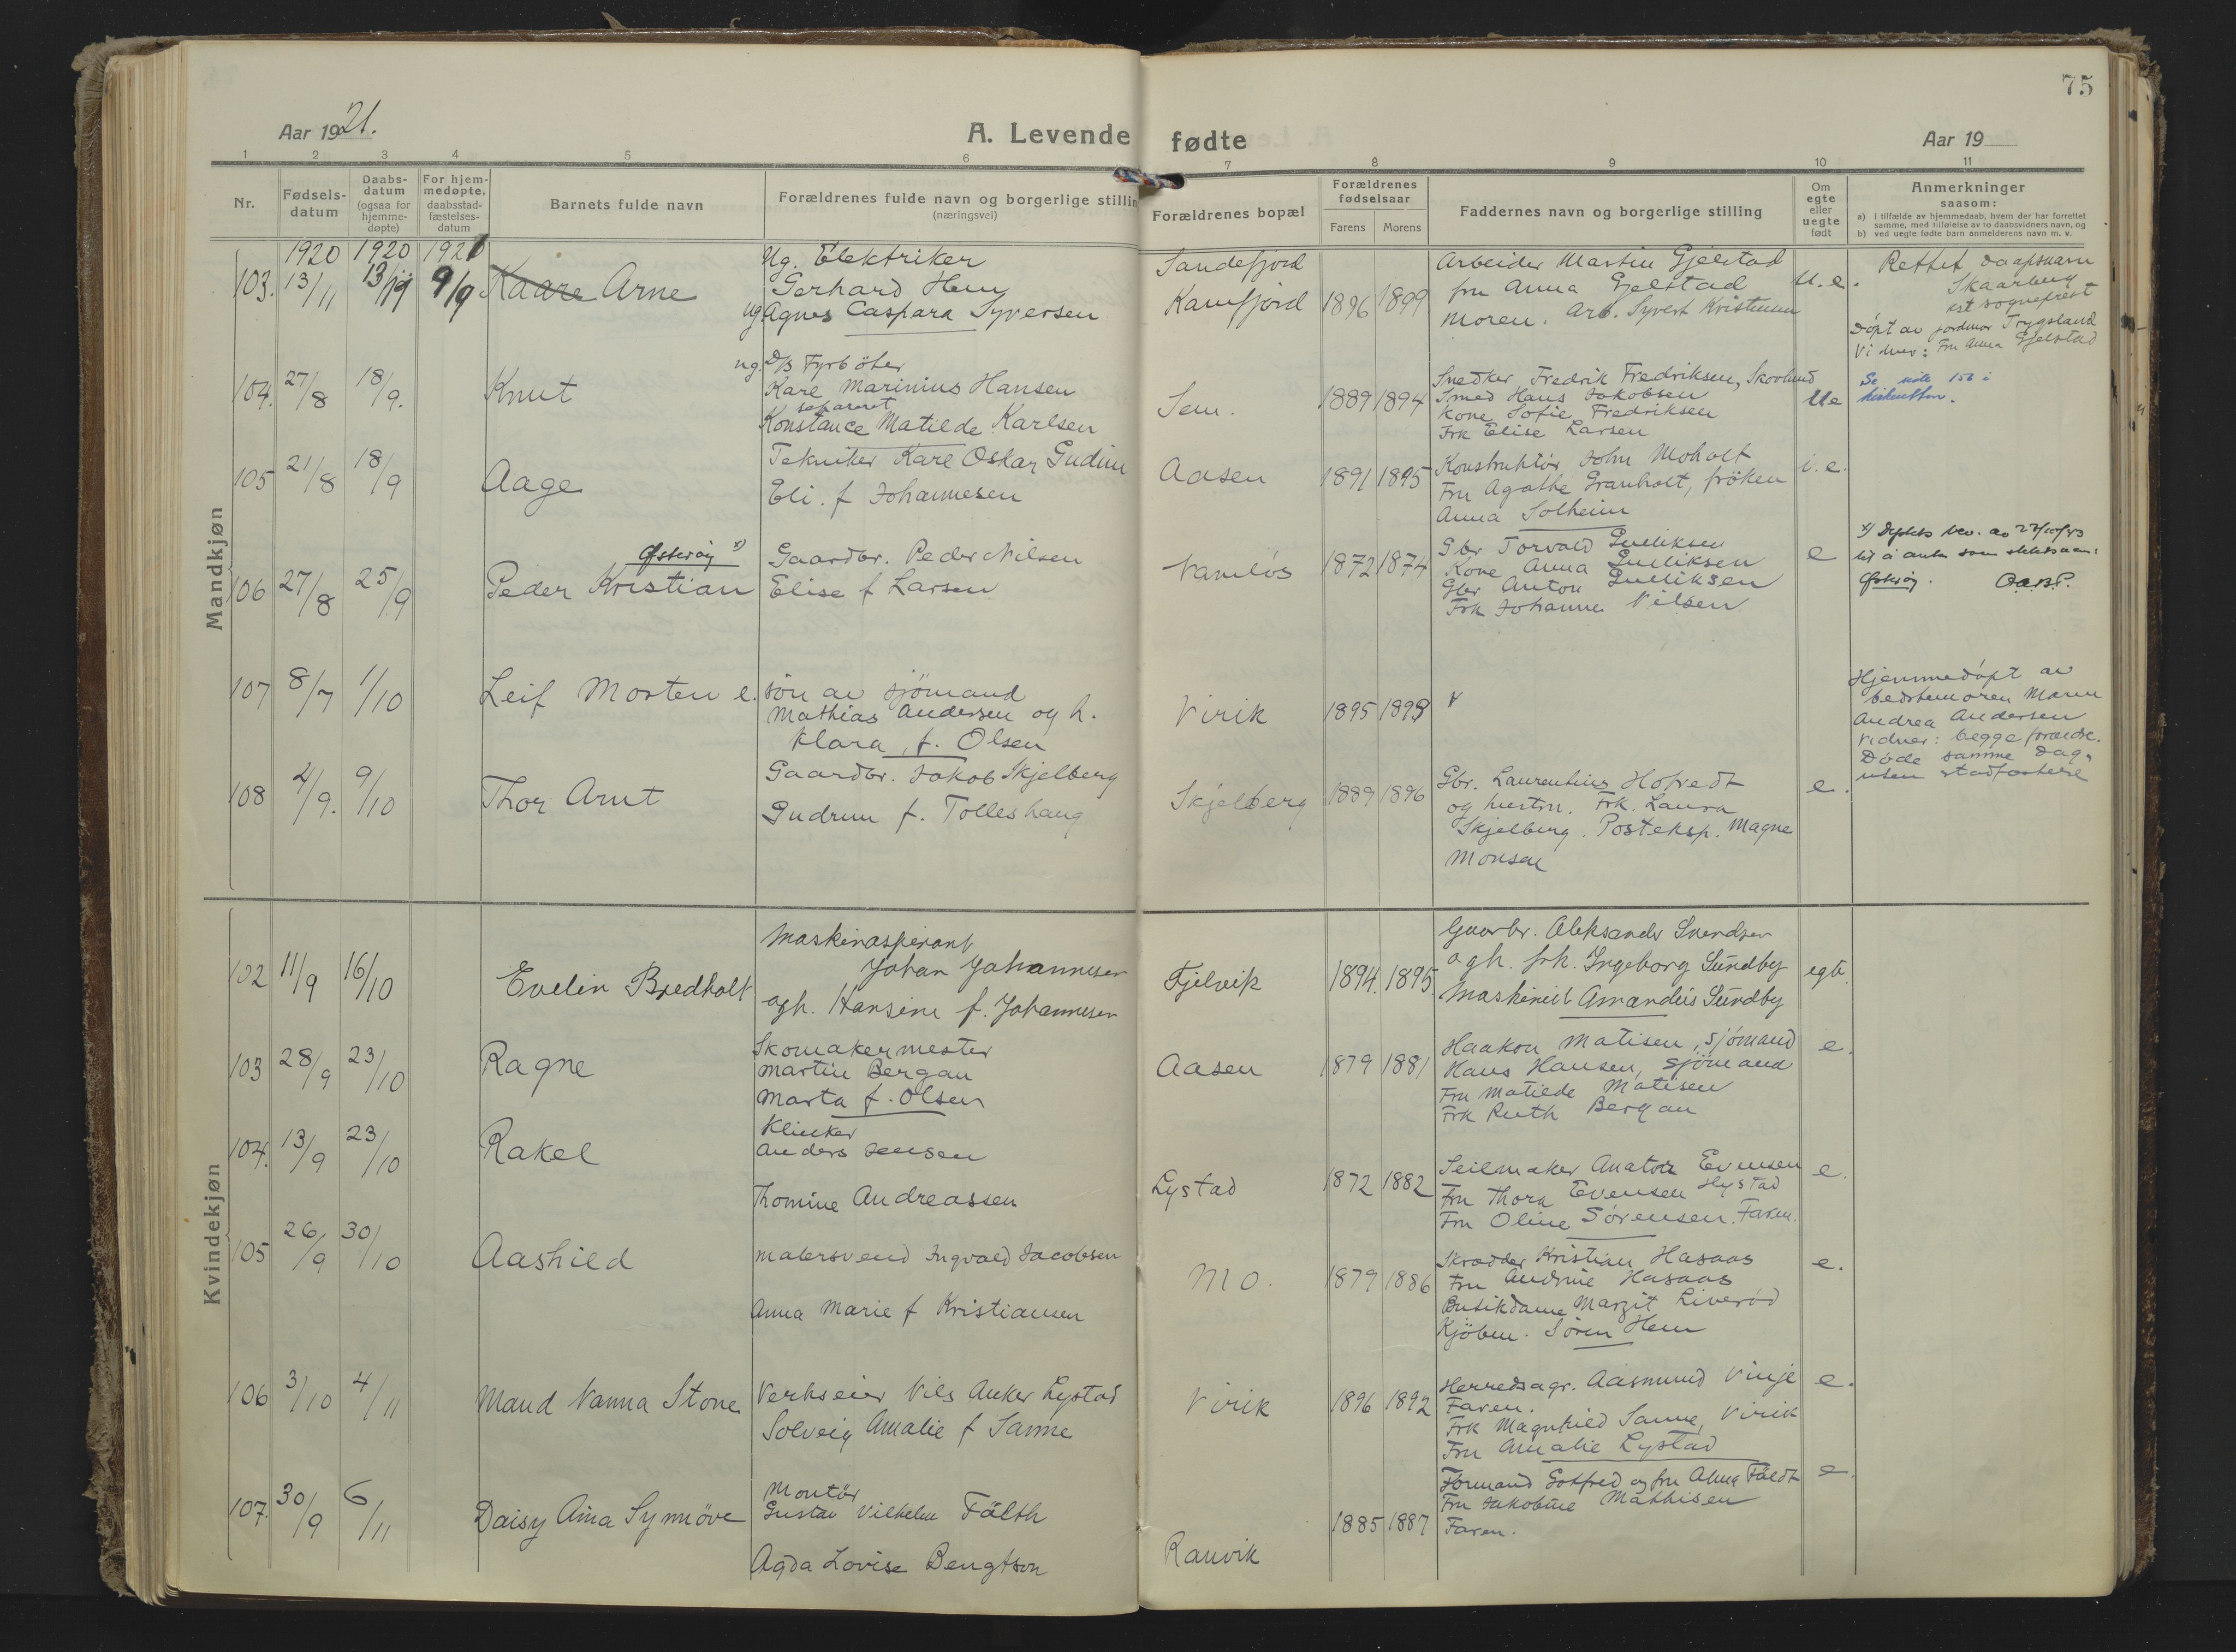 75
Aar 1921.
A. Levende fødte
Aar 19
1 2 3 4 5 6 7 8 9 10 11
Nr.
Fødsels-
datum
Daabs-
datum
(ogsaa for
hjemme-
døpte)
For hjem-
medøpte,
daabsstad-
fæstelses-
datum
Barnets fulde navn
Forældrenes fulde navn og borgerlige stillin
(næringsvei)
Forældrenes bopæl
Forældrenes
fødselsaar
Farens Morens
Faddernes navn og borgerlige stilling
Om
egte
eller
uegte
født
Anmerkninger
saasom:
a) i tilfælde av hjemmedaab, hvem der har forrettet
samme, med tilføielse av to daabsvidners navn, og
b) ved uegte fødte barn anmelderens navn m. v.
Mandkjøn
1920 1920 1921
103. 13/11 9/9 Kaare Arne
Ug. Elektriker
Gerhard Hem
ug. Agnes Caspara Syversen
Sandefjord
Kamfjord 1896 1899
Arbeider Martin Gjelstad
fru Anna Gjelstad
Moren. Arb. Syvert Kristensen
U.e.
Rettet daapsnavn
Skaarberg
sogneprest
Døpt av jordmor Trygsland
Vidner: Fru Anna Gjelstad
104. 27/8 18/9. Knut
ug. D/B Fyrböter
Karl Marinius Hansen
separert
Konstance Matilde Karlsen
Sem. 1889 1894
Snedker Fredrik Fredriksen, Skovlund
Smed Hans Jakobsen
Kone Sofie Fredriksen
Frk Elise Larsen
Ue
Se side 156 i
105 21/8 18/9 Aage
Tekniker Karl Oskar Gudim
Eli. f Johannesen
Aasen 1891 1895
Konstruktör John Moholt
Fru Agathe Granholt, fröken
Anna Solheim
i. e.
106 27/8 25/9 Peder Kristian Østerøy x)
Gaardbr. Peder Nilsen
Elise f Larsen
Namløs 1872 1874
Gbr Torvald Gulliksen
Kone Anna Gulliksen
Gbr Anton Gulliksen
Frk Johanne Nilsen
e
x) Deptets bev. av 27/10/43
til å anta som slektsnavn:
Østerøy.
107 8/7 1/10 Leif Morten e.
søn av sjömand
Mathias Andersen og h.
Klara, f. Olsen
Virik 1895 1899
Hjemmedöpt av
bedstemoren Maren
Andrea Andersen
Vidner: begge foreldre.
Døde samme dag,
uten stadfæstelse
108 4/9. 9/10 Thor Arnt
Gaardbr. Jakob Skjelberg
Gudrun f. Tolleshaug
Skjelberg 1889 1896
Gbr. Laurentius Hofredt
og hustru. Frk. Laura
Skjelberg. Posteksp. Magne
Monsen
e.
Kvindekjøn
102 11/9 16/10 Evelin Bredholt
Maskinaspirant
Johan Johannesen
ogh. Hansine f. Johannesen
Fjelvik 1894. 1895.
Gaarbr. Aleksander Svendsen
ogh. frk. Ingeborg Sundby
Maskinist Amandus Sundby
egte.
103 28/9 23/10 Ragne
Skomakermester
Martin Bergan
Marta f. Olsen
Aasen 1879 1881
Haakon Matisen, sjömand
Hans Hansen, sjömand
Fru Matilde Matisen
Frk Ruth Bergan
e.
104. 13/9 23/10 Rakel
Klinker
Anders Jensen
Thomine Andreassen
Lystad 1872 1882
Seilmaker Anaton Evensen
Fru Thora Evensen Hystad
Fru Oline Sörensen. Faren.
e.
105 26/9 30/10 Aashild
Malersvend Ingvald Jacobsen
Anna Marie f Kristiansen
Mo. 1879 1886
Skrædder Kristian Hasaas
Fru Andrine Hasaas
Butikdame Margit Liveröd
Kjöbm. Sören Hem
e.
106 3/10 4/11 Maud Nanna Stone
Verkseier Nils Anker Lystad
Solveig Amalie f Sanne
Virik 1896 1892
Herredsagr. Aasmund Vinje
Faren.
Frk Magnhild Sanne, Virik
Fru Amalie Lystad
e.
107. 30/9 6/11 Daisy Aina Synnöve
Montör
Gustav Vilhelm Fälth
Agda Lovise Bengtson
Ranvik 1885 1887
Formand Gotfred og fru Alma Fäldt
Fru Jakobine Mathisen
Faren.
e.